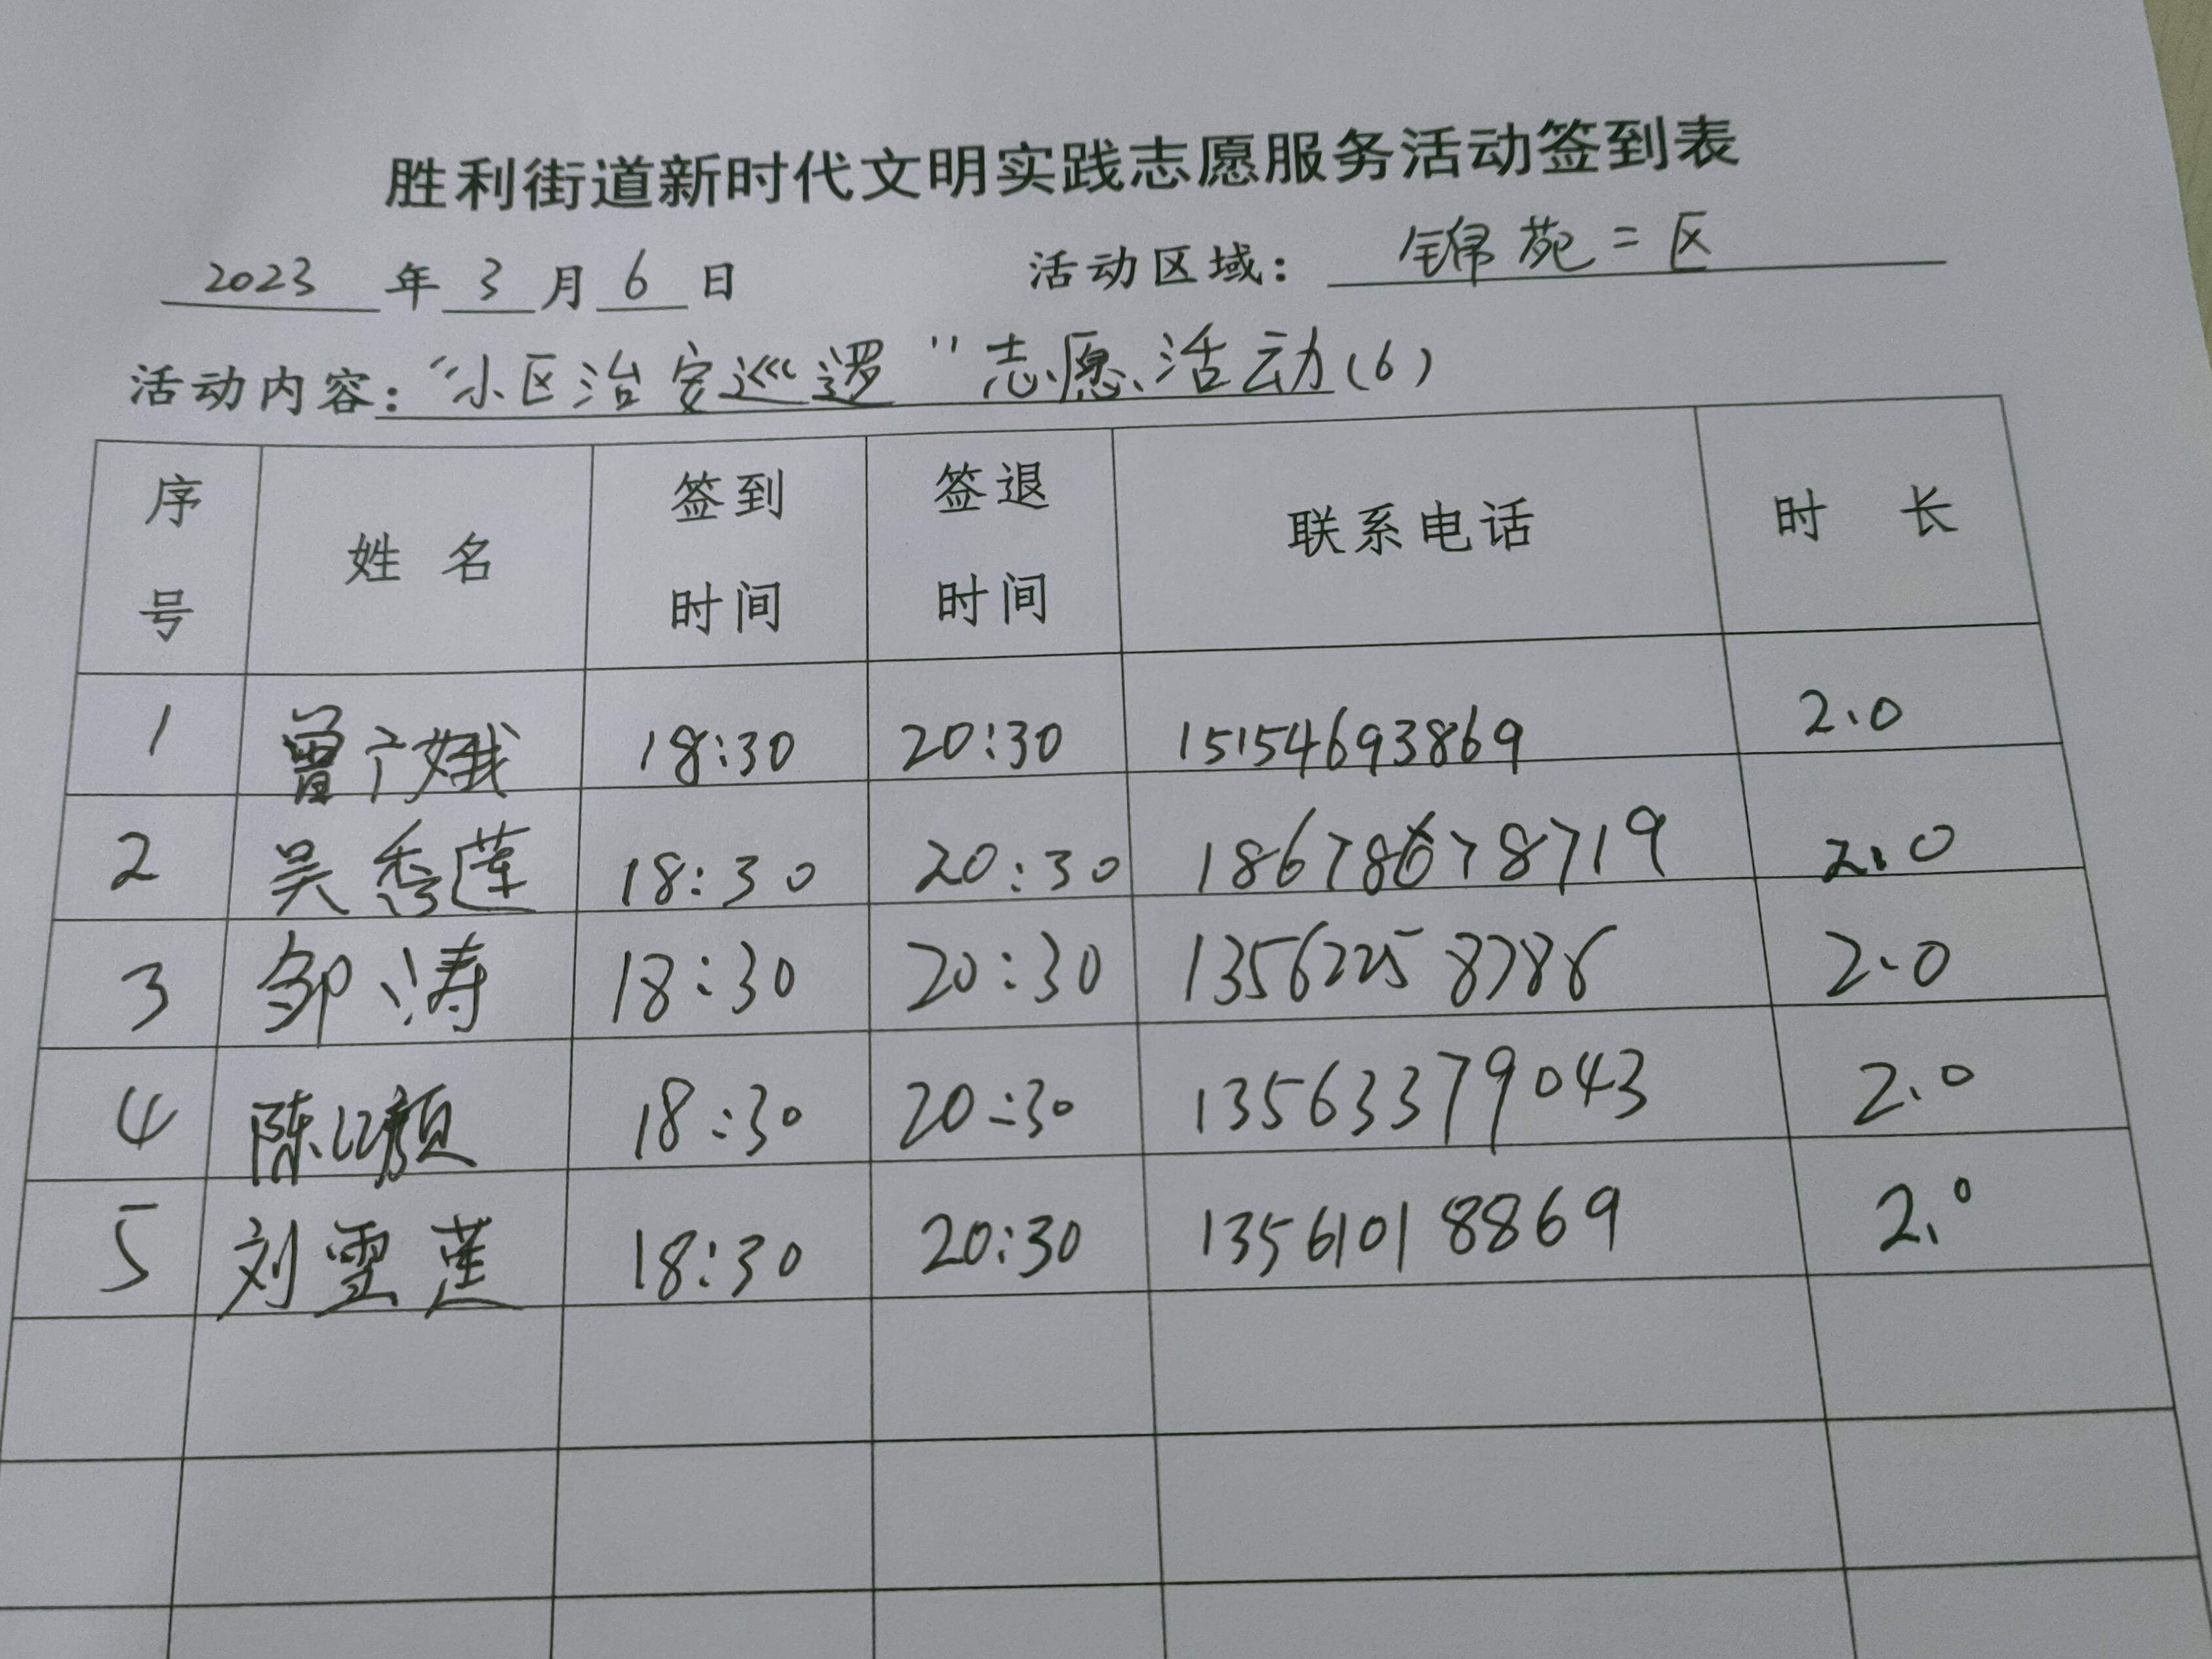 胜利街道新时代文明实践志愿服务活动签到表
2023 年 3 月 6 日 活动区域： 锦苑二区
活动内容："小区治安巡逻"志愿活动(6)
序号 姓名 签到时间 签退时间 联系电话 时长
1 曾广娥 18:30 20:30 15154693869 2.0
2 吴秀莲 18:30 20:30 2.0
3 邹涛 18:30 20:30 13562258786 2.0
4 陈 18:30 20:30 13563379043 2.0
5 刘雪莲 18:30 20:30 13561018869 2.0